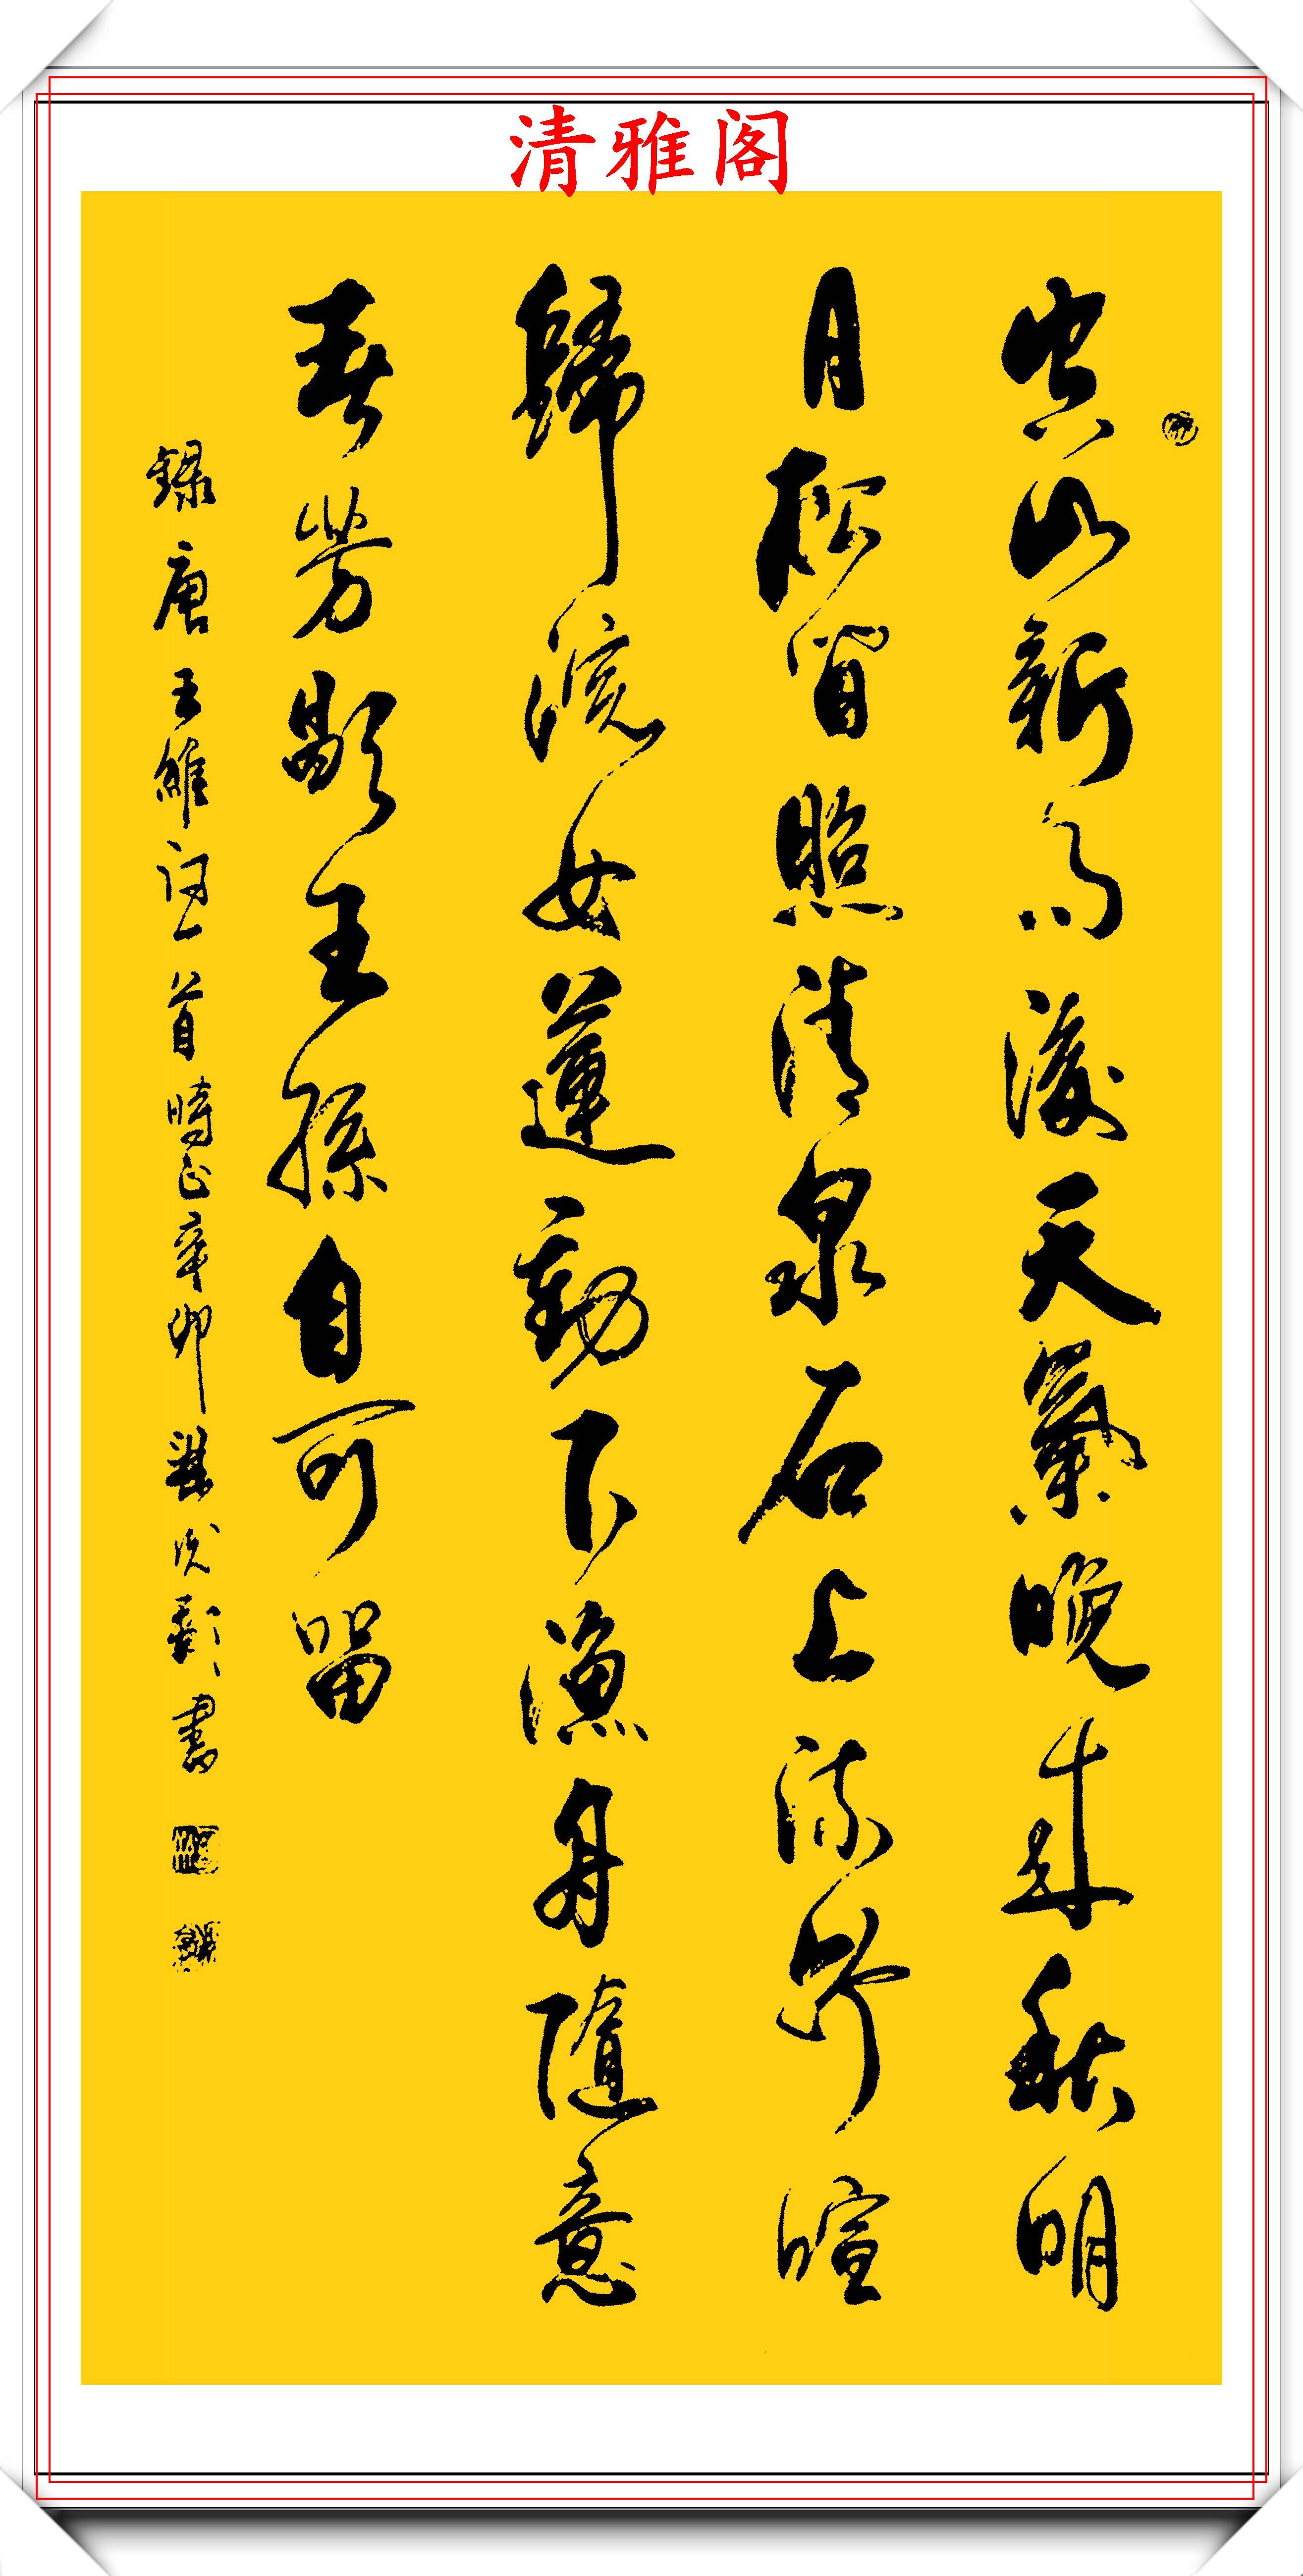 清雅阁
空山新雨後天氣晚來秋明
月松間照清泉石上流竹喧
歸浣女蓮動下漁舟隨意
春芳歇王孫自可留
錄唐王維詩一首時辛卯書